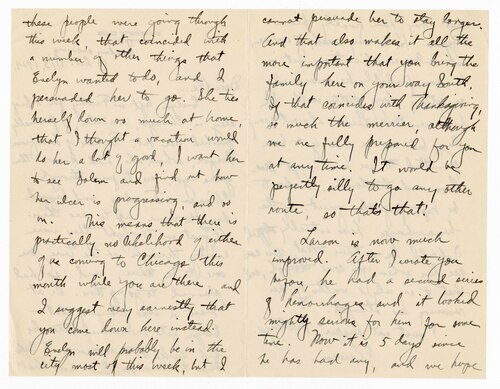 these people were going through
this week that coincided with
a number of other things that
Evelyn wanted to do, and I
persuaded her to go. She ties
herself down so much at home,
that I thought a vacation would
do her a lot of good, I want her
to see Salem and find out how
her ulcer is progressing, and so
on. This means that there is
practically no likelihood of either
of us coming to Chicago this
month while you are there, and
I suggest very earnestly that
you come down here instead.
Evelyn will probably be in the
city most of this week, but I
cannot persuade her to stay longer.
And that also makes it all the
more important that you bring the
family here on your way South.
If that coincides with Thanksgiving,
so much the merrier, although
we are fully prepared for you
at any time. It would be
perfectly silly to go any other
route, so that's that!
Larson is now much
improved. After I wrote you
before, he had a second series
of hemorrhages and it looked
mighty serious for him for some
time. Now it is 5 days since
he has had any, and we hope